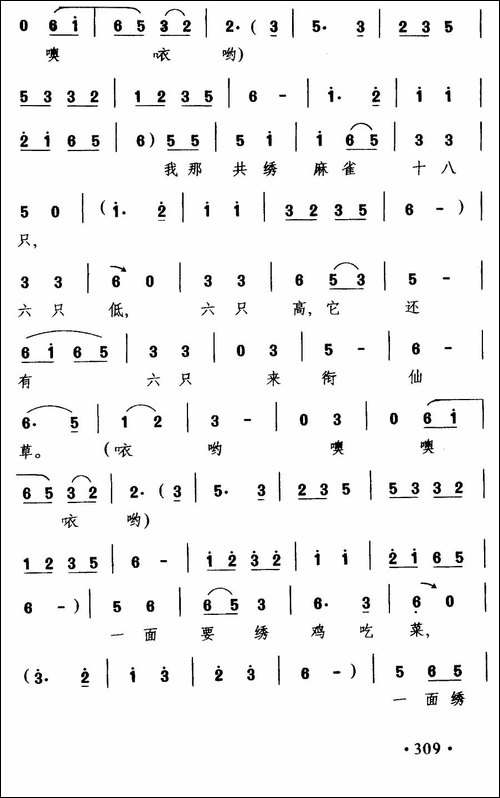 0 6 i | 6 5 3 2 | 2· ( 3 | 5· 3 | 2 3 5 |
噢 咴 哟)
5 3 3 2 | 1 2 3 5 | 6 - | i· 2 | i i |
2 i 6 5 | 6 ) 5 5 | 5 i | i 6 5 | 3 3 |
我 那 共 绣 麻 雀 十 八
5 0 | ( i· 2 | i i | 3 2 3 5 | 6 - ) |
只,
3 3 | 6 0 | 3 3 | 6 5 3 | 5 - |
六 只 低, 六 只 高, 它 还
6 i 6 5 | 3 3 | 0 3 | 5 - | 6 - |
有 六 只 来 衔 仙
6· 5 | 1 2 | 3 - | 0 3 | 0 6 i |
草。 (咴 哟 噢 噢
6 5 3 2 | 2· ( 3 | 5· 3 | 2 3 5 | 5 3 3 2 |
咴 哟)
1 2 3 5 | 6 - | i 2 3 2 | i i | 2 i 6 5 |
6 - ) | 5 6 | 6 5 3 | 6· 3 | 6 0 |
一 面 要 绣 鸡 吃 菜,
( 3· 2 | i 3 | 2 3 | 6 - ) | 5 6 5 |
一 面 绣
· 309 ·